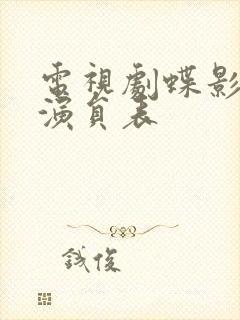 電視劇蝶影
演員表
誠俊